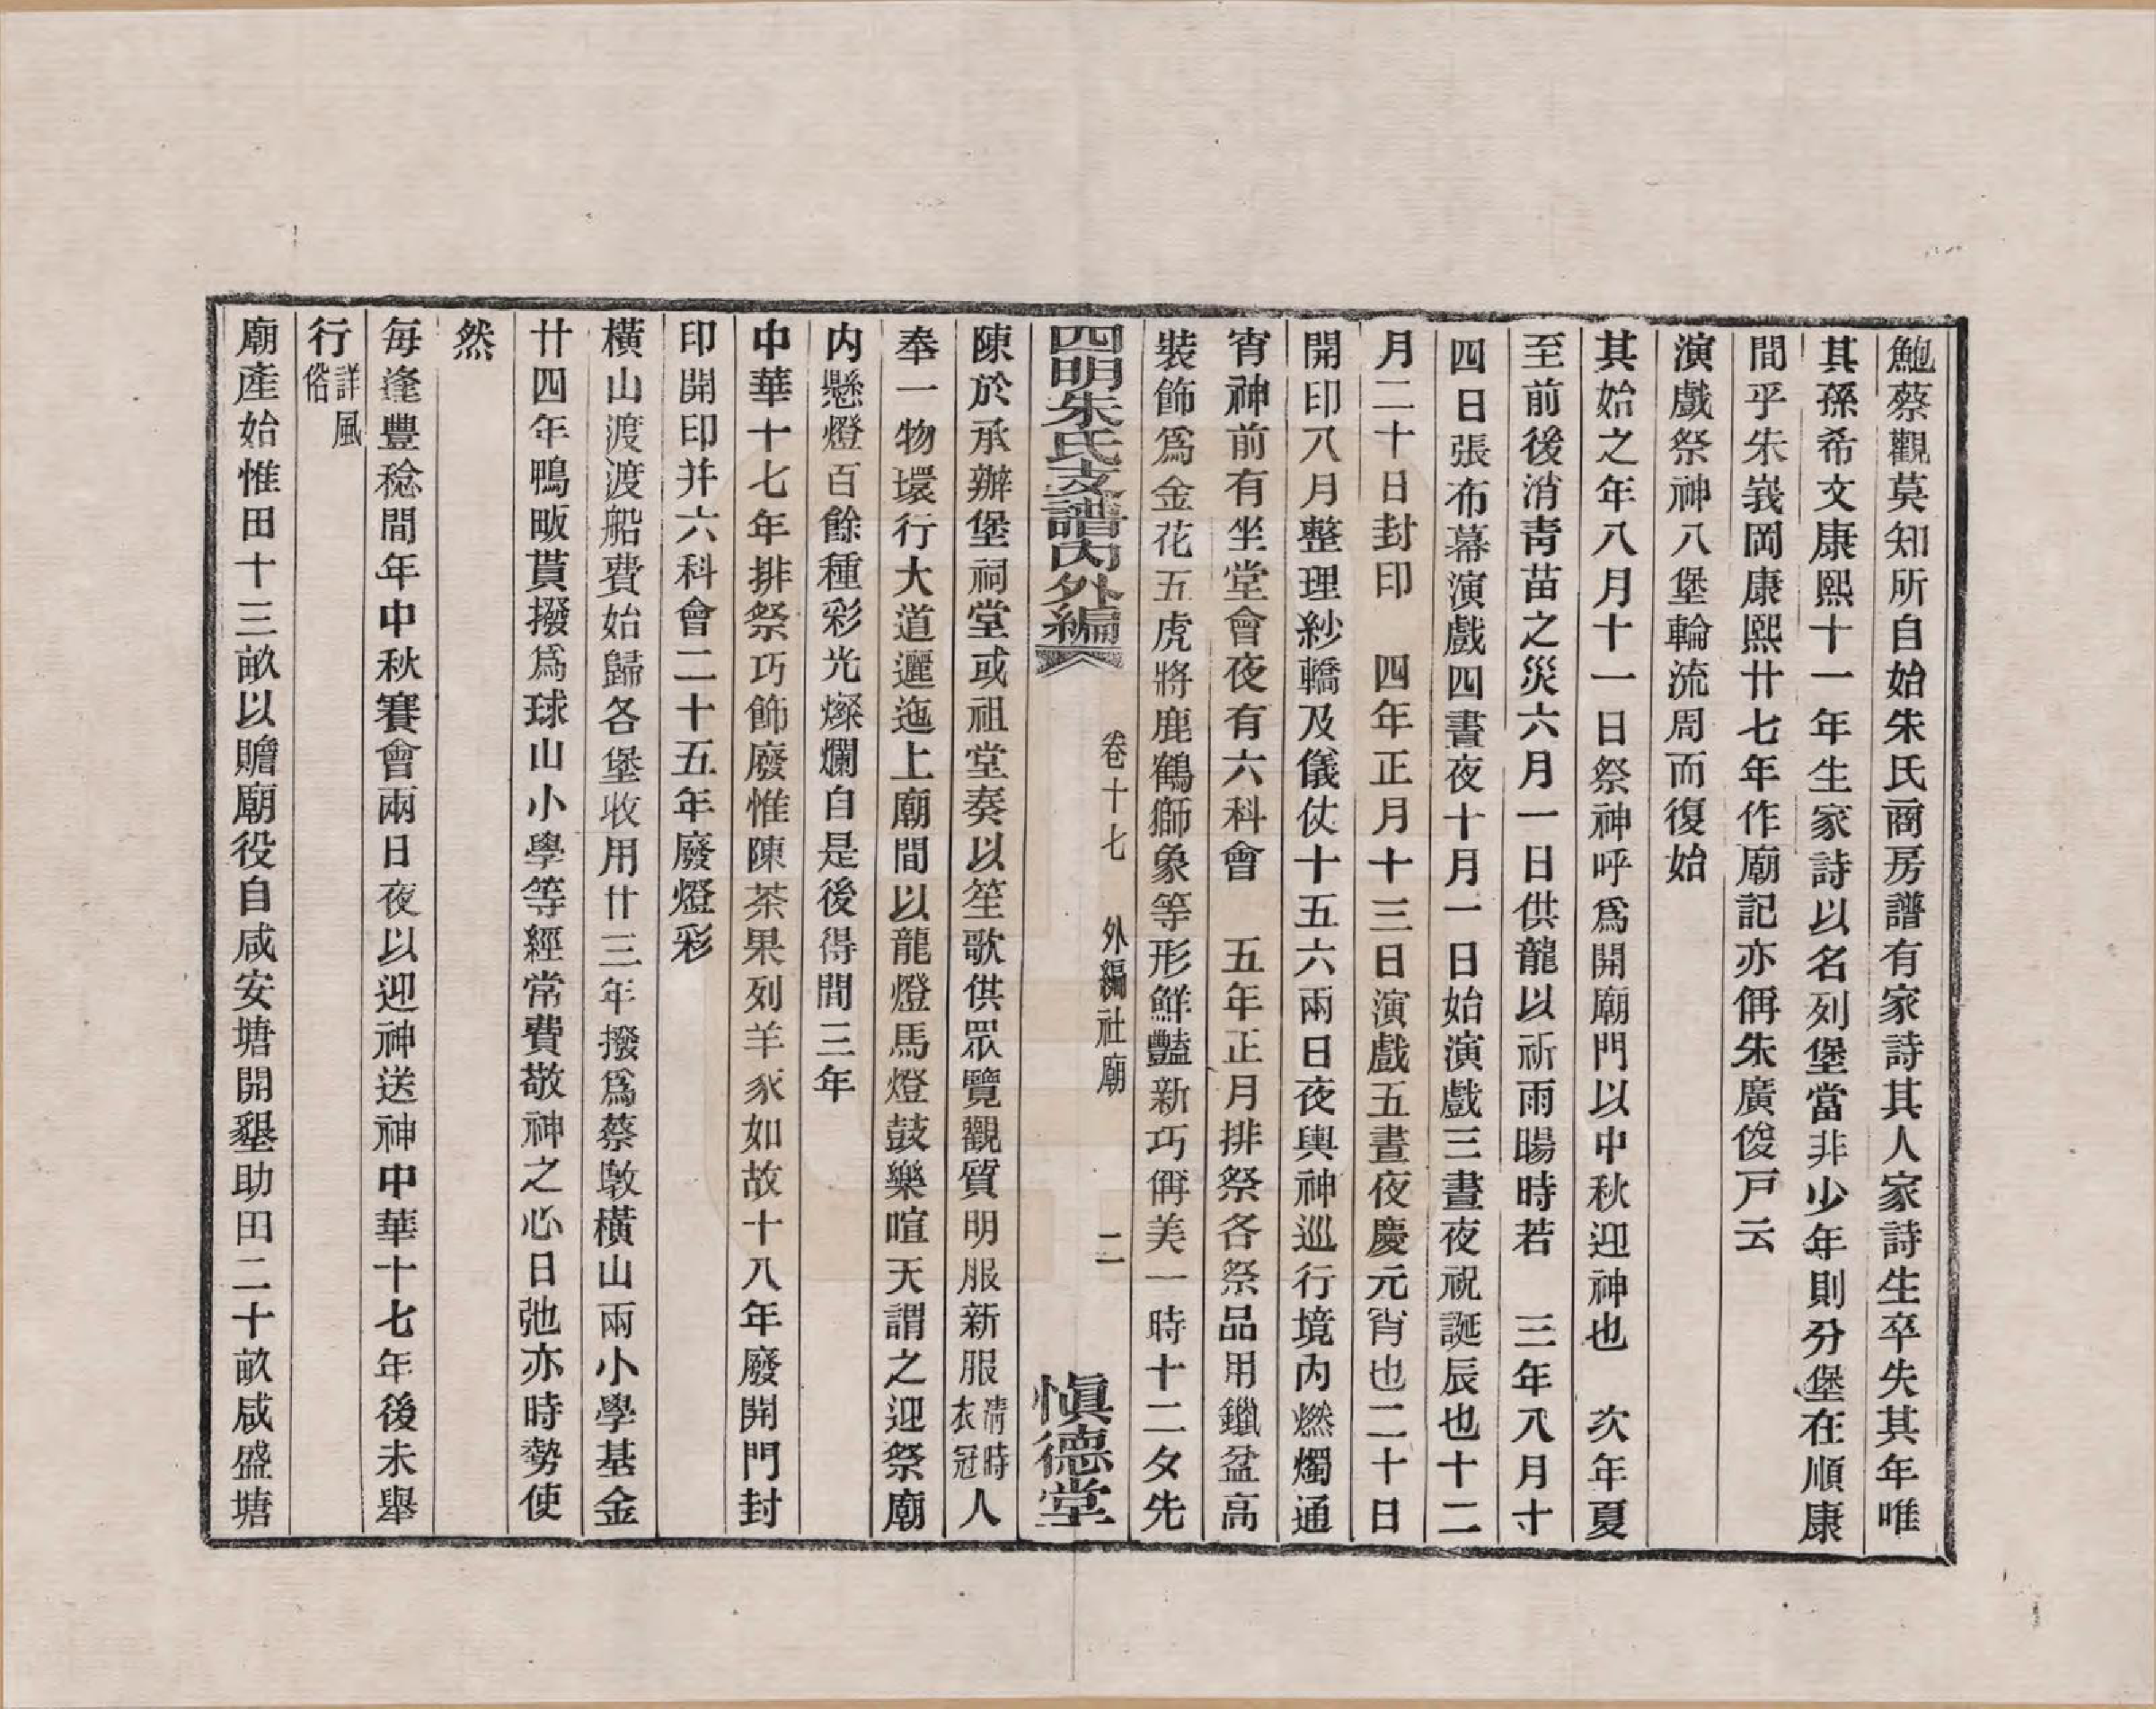 鮑蔡觀莫知所自始朱氏商房譜有家詩其人家詩生卒失其年唯
其孫希文康熙十一年生家詩以名列堡當非少年則分堡在順康
間乎朱峩岡康熙廿七年作廟記亦偁朱廣俊戸云
演戲祭神八堡輪流周而復始
其始之年八月十一日祭神呼爲開廟門以中秋迎神也　次年夏
至前後消青苗之災六月一日供龍以祈雨暘時若　三年八月十
四日張布幕演戲四晝夜十月一日始演戲三晝夜祝誕辰也十二
月二十日封印　四年正月十三日演戲五晝夜慶元宵也二十日
開印八月整理紗轎及儀仗十五六兩日夜輿神巡行境内燃燭通
宵神前有坐堂會夜有六科會　五年正月排祭各祭品用鑞盆高
裝飾爲金花五虎將鹿鶴獅象等形鮮豔新巧偁美一時十二夕先
四明朱氏支譜內外編　卷十七　外編　社廟　二　慎德堂
陳於承辦堡祠堂或祖堂奏以笙歌供眾覽觀質明服新服清時衣冠人
奉一物環行大道邐迤上廟間以龍燈馬燈鼓樂喧天謂之迎祭廟
内懸燈百餘種彩光燦爛自是後得間三年
中華十七年排祭巧飾廢惟陳茶果列羊豕如故十八年廢開門封
印開印并六科會二十五年廢燈彩
橫山渡渡船費始歸各堡收用廿三年撥爲蔡墩橫山兩小學基金
廿四年鴨畈蕡撥爲球山小學等經常費敬神之心日弛亦時勢使
然
每逢豐稔間年中秋賽會兩日夜以迎神送神中華十七年後未舉
行詳風俗
廟產始惟田十三畝以贍廟役自咸安塘開墾助田二十畝咸盛塘